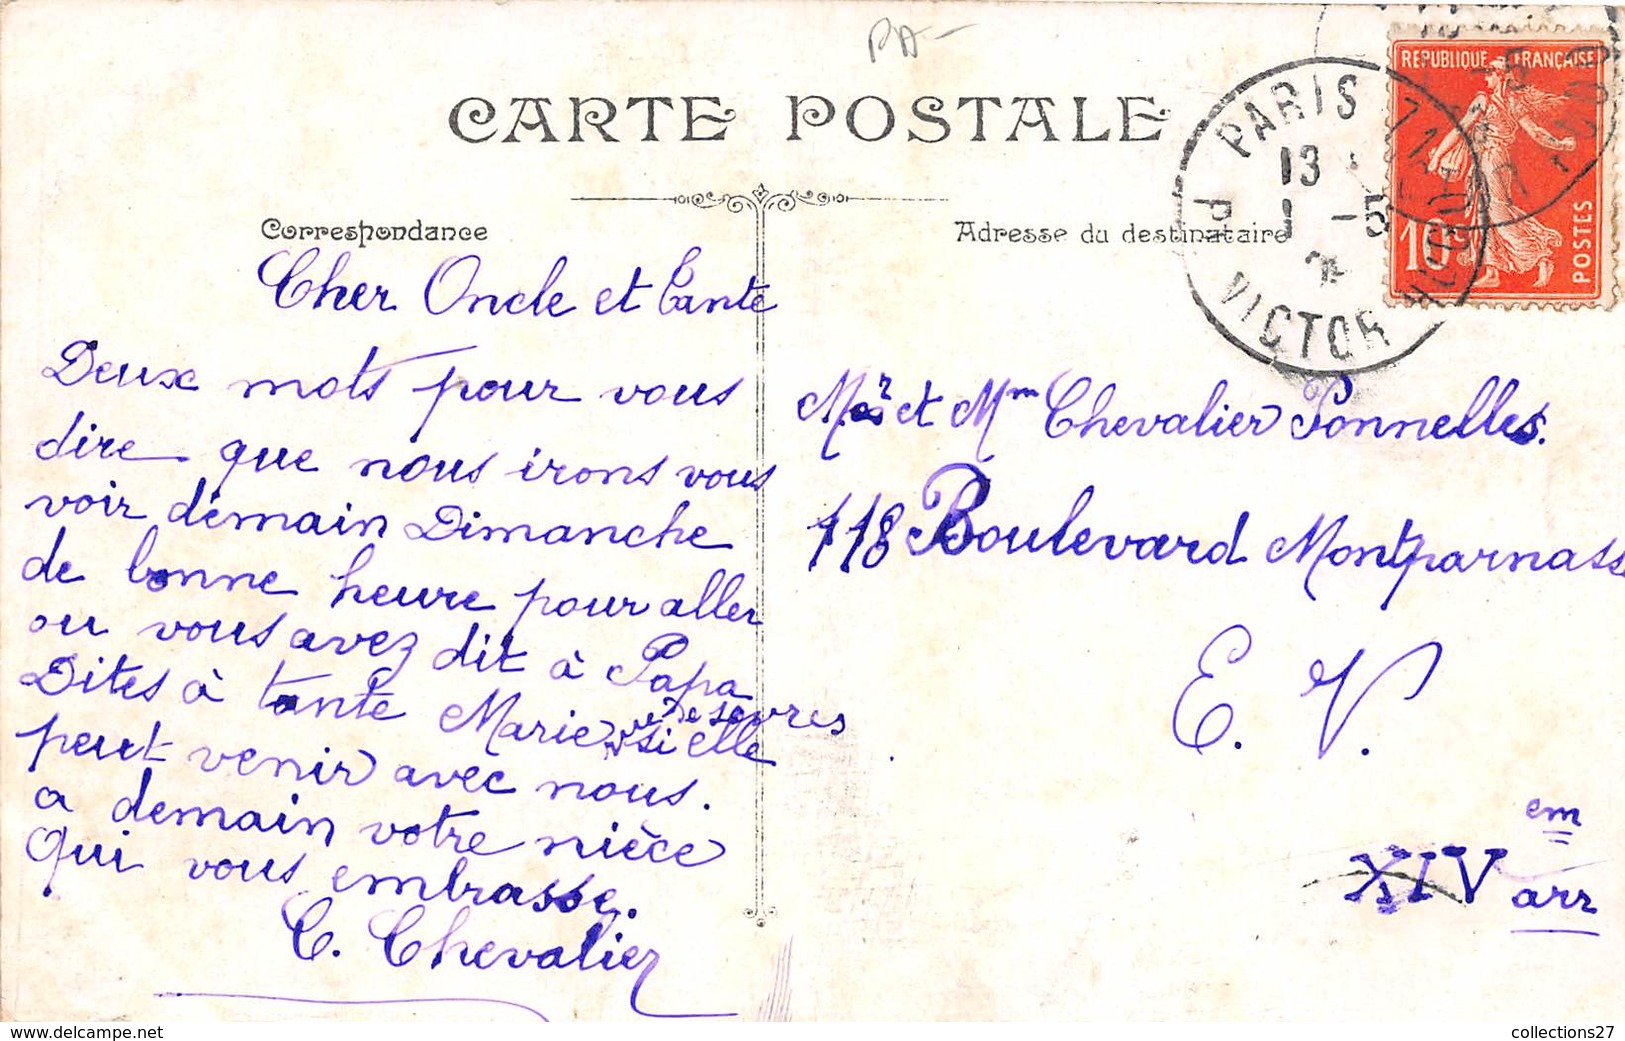 PA-
CARTE POSTALE
Correspondance
Adresse du destinataire
REPUBLIQUE FRANÇAISE
10c
POSTES
PARIS 71
13
1 -5
PL VICTOR HUGO
Cher Oncle et Tante
Deux mots pour vous
dire que nous irons vous
voir demain Dimanche
de bonne heure pour aller
ou vous avez dit à Papa
Dites à tante Marie si elle
rue de sevres
peut venir avec nous.
a demain votre nièce
Qui vous embrasse.
C. Chevalier
Mr et Mm Chevalier Ponnelles.
118 Boulevard Montparnasse
E. V.
XIV em arr
collections27